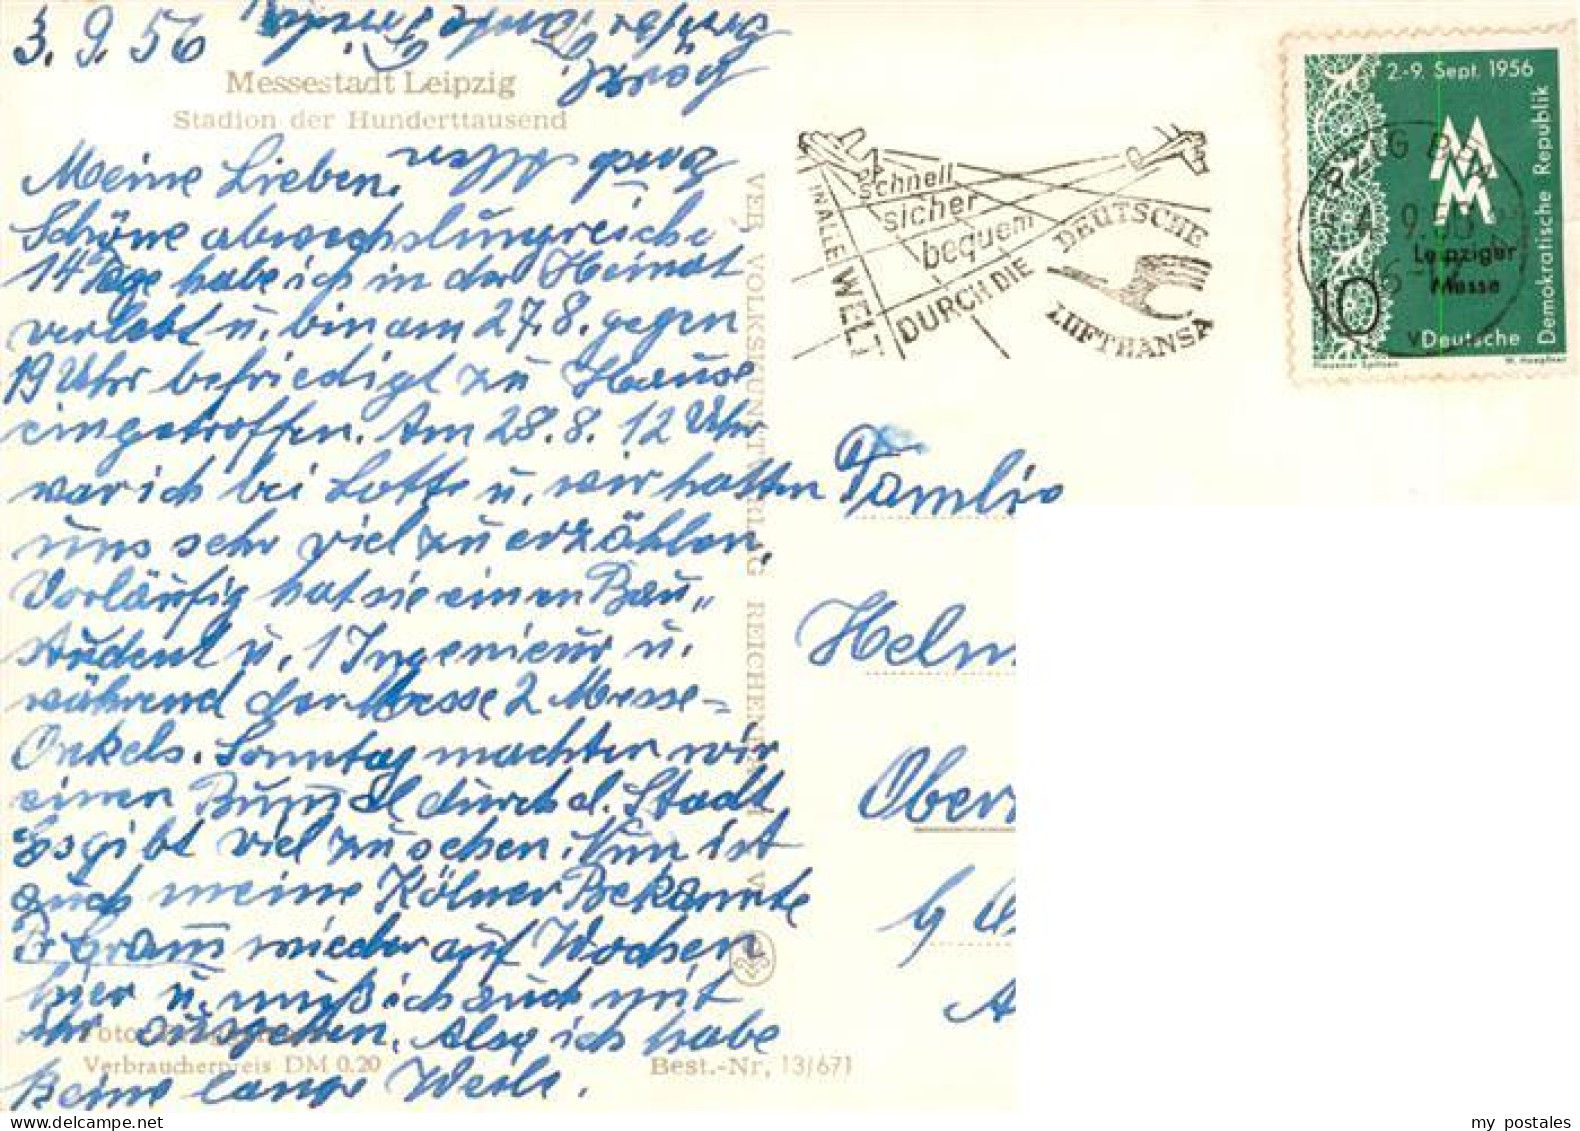 3. 9. 56
Messestadt Leipzig
Stadion der Hunderttausend
Meine Lieben,
Schöne abwechslungsreiche
14 Tage habe ich in der Heimat
verlebt u. bin am 27.8. gegen
19 Uhr befriedigt zu Hause
eingetroffen. Am 28.8. 12 Uhr
war ich bei Lotte u. wir hatten
uns sehr viel zu erzählen.
Vorläufig hat sie einen Bau„
student u. 1 Ingenieur u.
während der Messe 2 Messe-
Onkels. Sonntag machten wir
einen Bummel durch d. Stadt
Es gibt viel zu sehen. Nun ist
auch meine Kölner Bekannte
wieder auf Wochen
hier u. muß ich auch mit
ihr ausgehen. Also ich habe
keine lange Weile.
Foto
Verbraucherpreis DM 0.20
Best.-Nr. 13/671
VEB VOLKSKUNSTVERLAG REICHENBACH V
IN ALLE WELT
schnell
sicher
bequem
DURCH DIE
DEUTSCHE
LUFTHANSA
2.-9. Sept. 1956
MM
Leipziger
Messe
10
Deutsche
Demokratische Republik
Plauener Spitzen
Familie
Helm
Ober